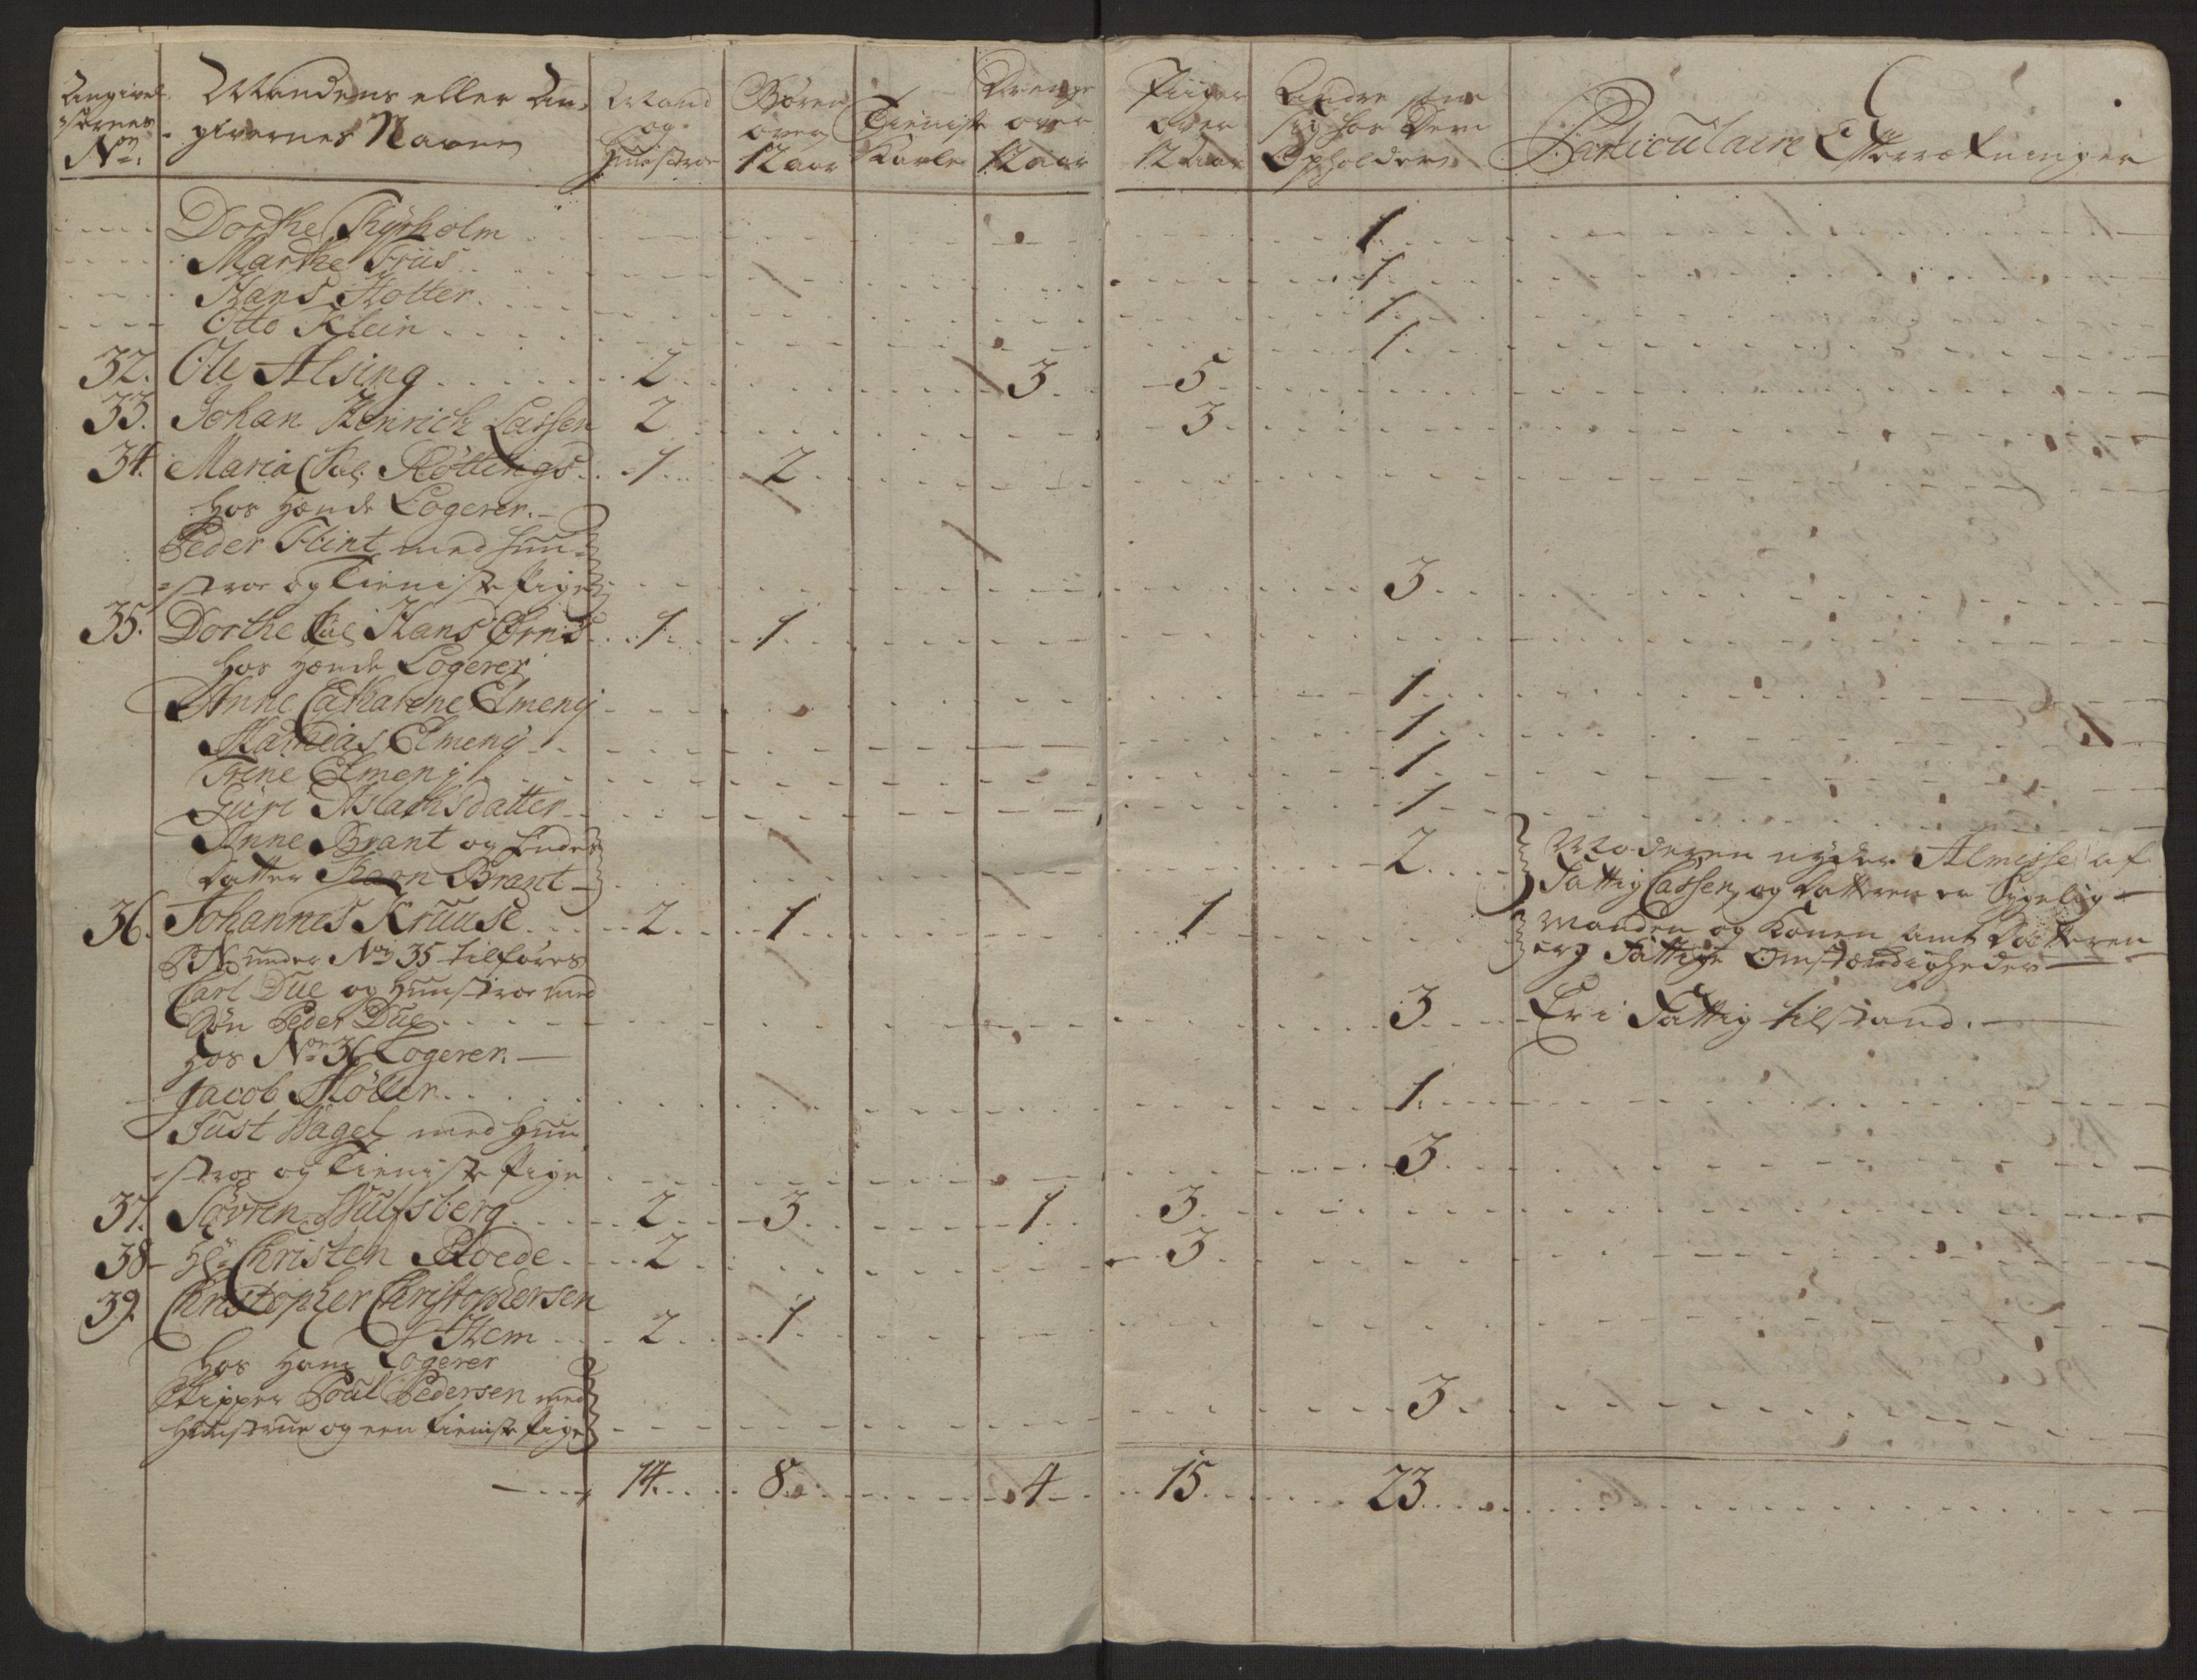 Angivel-
sernes
No.
Mandens eller An-
givernes Navne
Mand
og
Hustroe
Børen
over
12 aar
Tieniste
Karle
Drenge
over
12 aar
Piiger
over
12 aar
Andre som
sig hos Dem
Opholder
Particulaire Efterrætninger
Dorthe Thyrholm 1
Marthe Friis 1
Hans Holter 1
Otto Klein 1
32. Ole Alsing 2 3 5
33. Johan Henrich Lassen 2 3
34. Maria Sal: Røttings 1 2
hos hende Logerer.
Peder Flint med Huu-
stroe og Tieniste Pige 3
35. Dorthe Sal: Hans Ørns 1 1
hos hende Logerer
Anne Catharene Elmenj 1
Mathias Elmenj 1
Trine Elmenj 1
Guri Aslachsdatter 1
Anne Brant og hendes
Datter Karn Brant 2
Moderen nyder Almisse af
Fattig Cassen, og Datteren er Sygelig
36. Johannes Kruuse 2 1 1
Manden og Konen samt Datteren
er i Fattige Omstændigheder
NB under No 35 tilføres
Carl Due og Hustroe med
Søn Peder Due 3 Er i Fattig tilstand.
hos No 36 Logerer.
Jacob Møller 1
Just Wagel med Huu
stroe og Tieniste Pige 3
37. Søvren Wulfsberg 2 3 1 3
38 Hr. Christen Roede 2 3
39. Christopher Christophersen
Hem 2 1
hos ham Logerer
Skipper Poul Pedersen med
Hustrue og een Tieniste Pige 3
14 8 4 15 23